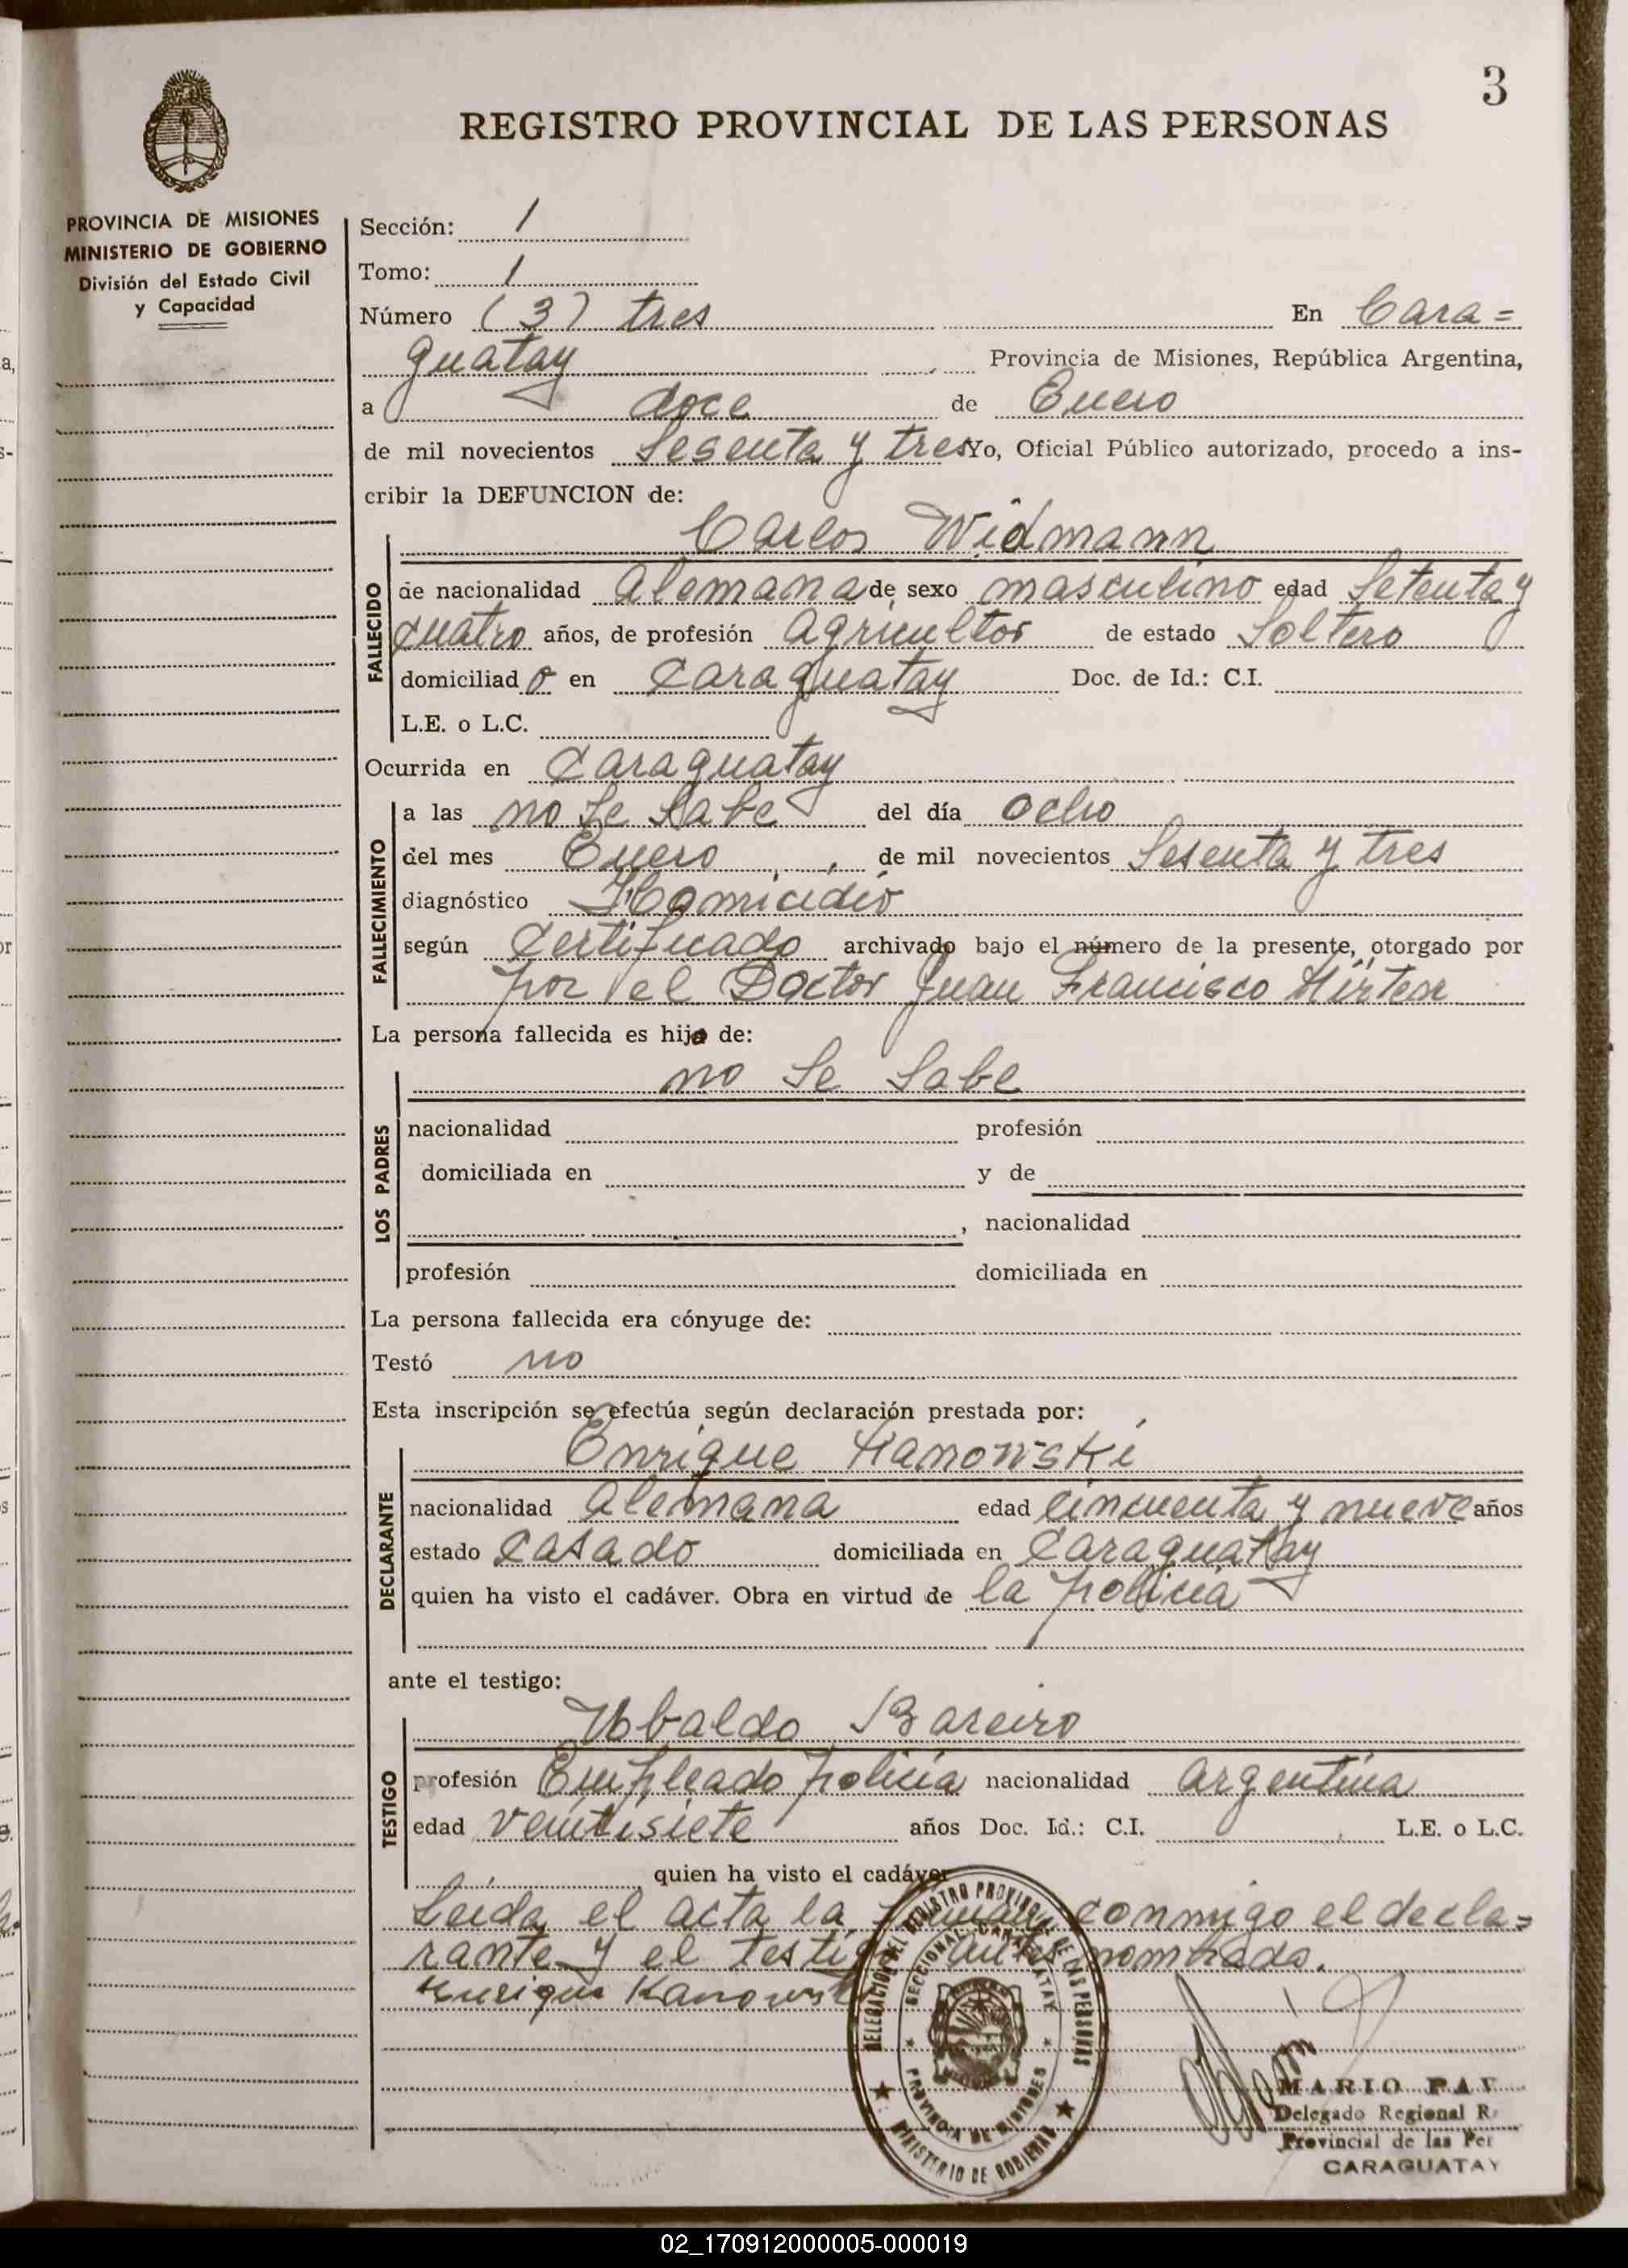 3
REGISTRO PROVINCIAL DE LAS PERSONAS
PROVINCIA DE MISIONES
MINISTERIO DE GOBIERNO
División del Estado Civil
y Capacidad
Sección: 1
Tomo: 1
Número (3) tres En Cara=
guatay Provincia de Misiones, República Argentina,
a doce de Enero
de mil novecientos Sesenta y tres Yo, Oficial Público autorizado, procedo a ins-
cribir la DEFUNCION de:
Carlos Widmann
FALLECIDO
de nacionalidad Alemana de sexo masculino edad Setenta y
cuatro años, de profesión Agricultor de estado Soltero
domiciliado en Caraguatay Doc. de Id.: C.I.
L.E. o L.C.
Ocurrida en Caraguatay
FALLECIMIENTO
a las no Se Sabe del día ocho
del mes Enero de mil novecientos Sesenta y tres
diagnóstico Homicidio
según Certificado archivado bajo el número de la presente, otorgado por
por el Doctor Juan Francisco
La persona fallecida es hijo de:
no Se Sabe
LOS PADRES
nacionalidad profesión
domiciliada en y de
, nacionalidad
profesión domiciliada en
La persona fallecida era cónyuge de:
Testó no
Esta inscripción se efectúa según declaración prestada por:
Enrique Kanowski
DECLARANTE
nacionalidad Alemana edad Cincuenta y nueve años
estado Casado domiciliada en Caraguatay
quien ha visto el cadáver. Obra en virtud de la policia
ante el testigo:
Ubaldo Bareiro
TESTIGO
profesión Empleado policia nacionalidad argentina
edad veintisiete años Doc. Id.: C.I. L.E. o L.C.
quien ha visto el cadáver
Leida el acta la conmigo el decla=
rante y el testigo antes nombrado.
Enrique Kanowski
DELEGACION DEL REGISTRO PROVINCIAL DE LAS PERSONAS
SECCIONAL CARAGUATAY
PROVINCIA DE MISIONES
MINISTERIO DE GOBIERNO
MARIO PAV
Delegado Regional R
Provincial de las Per
CARAGUATAY
02_170912000005-000019